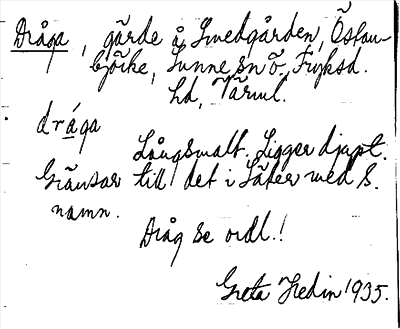 Dråga, gärde å Smedgården, Östan-
bjöcke, Sunne sn Ö. Fryksd.
hd, Värml.
dråga
Långsmalt. Ligger djupt.
Gränsar till det i Säter med s.
namn.
Dråg se ordl.!
Greta Hedin 1935.